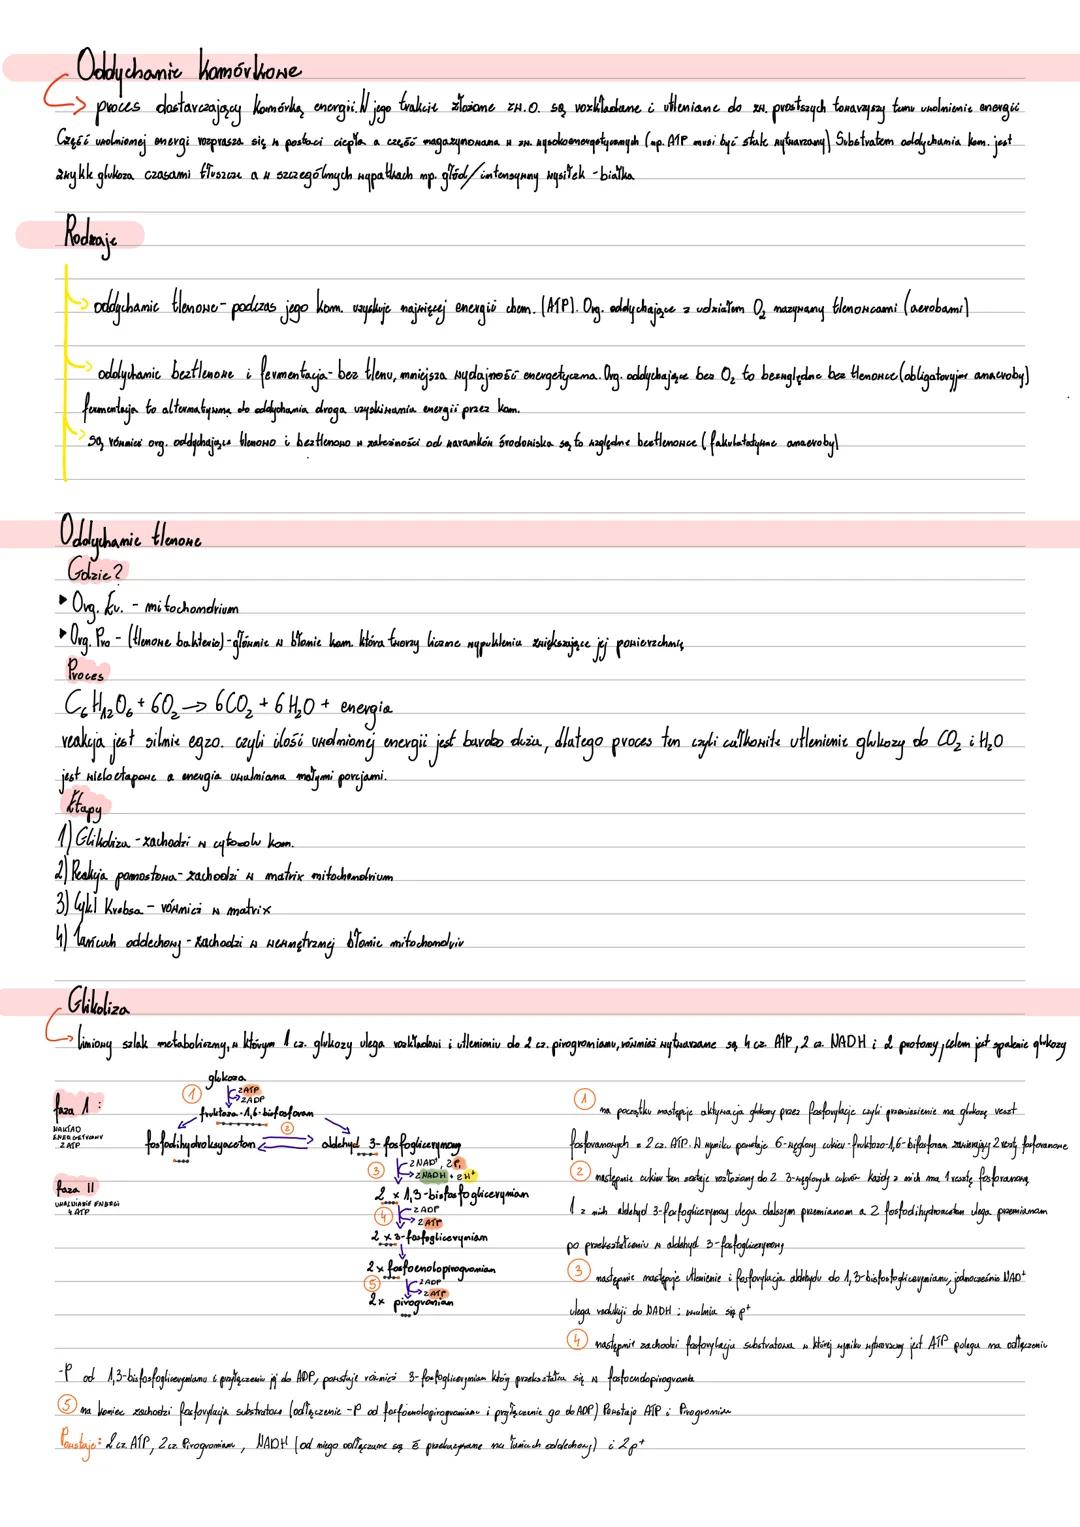 Oddychanie komórkowe
proces dostarczający komórką energii. W jego trakcie złożone zw. O. są rozkładane i utleniane do zw. prostszych towarzyszy temu uwolnienie energii
Część uwolnionej energi rozprasza się w postaci ciepła a część magazynowana w zw. wysokoenergetycznych (np. ATP musi być stale wytwarzany) Substratem oddychania kom. jest
zwykle glukoza czasami tłuszcze a w szczególnych wypadkach np. głód/intensywny wysiłek - białka
Rodzaje
oddychanie tlenowe - podczas jego kom. uzyskuje najwięcej energii chem. (ATP). Org. oddychające z udziałem O₂ nazywamy tlenowcami (aerobami)
oddychanie beztlenowe i fermentacja - bez tlenu, mniejsza wydajność energetyczna. Org. oddychające bez O₂ to bezwzględne beztlenowce (obligatoryjne anaeroby)
fermentacja to alternatywna do oddychania droga uzyskiwania energii przez kom.
są również org. oddychające tlenowo i beztlenowo w zależności od warunków środowiska są to względne beztlenowce (fakultatywne anaeroby)
Oddychanie tlenowe
Gdzie?
Org. Eu. - mitochondrium
Org. Pro - (tlenowe bakterie) - głównie w błonie kom. która tworzy liczne wypuklenia zwiększające jej powierzchnię
Proces
C₆H₁₂O₆ + 6O₂ → 6CO₂ + 6H₂O + energia
reakcja jest silnie egzo. czyli ilość uwolnionej energii jest bardzo duża, dlatego proces ten czyli całkowite utlenienie glukozy do CO₂ i H₂O
jest wieloetapowe a energia uwalniana małymi porcjami.
Etapy
1) Glikoliza - zachodzi w cytozolu kom.
2) Reakcja pomostowa - zachodzi w matrix mitochondrium
3) Cykl Krebsa - również w matrix
4) Łańcuch oddechowy - zachodzi w wewnętrznej błonie mitochondriów
Glikoliza
liniowy szlak metaboliczny, w którym 1 cz. glukozy ulega rozkładowi i utlenieniu do 2 cz. pirogronianu, również wytwarzane są 4 cz. ATP, 2 cz. NADH i 2 protony, celem jest spalenie glukozy
faza I:
NAKŁAD
ENERGETYCZNY
2 ATP
faza II
UWALNIANIE ENERGI
4 ATP
glukoza
1 2ATP
2ADP
fruktoza-1,6-bisfosforan
2
fosfodihydroksyaceton aldehyd 3-fosfoglicerynowy
3 2NAD⁺ 2Pᵢ
2NADH + 2H⁺
2 x 1,3-bisfosfoglicerynian
4 2ADP
2ATP
2 x 3-fosfoglicerynian
2x fosfoenolopirogronian
5 2ADP
2ATP
2x pirogronian
1 na początku następuje aktywacja glukozy przez fosforylację czyli przeniesienie na glukozę reszt
fosforanowych z 2 cz. ATP. W wyniku powstaje 6-węglowy cukier - fruktozo-1,6-bisfosforan zawierający 2 reszty fosforanowe
2 następnie cukier ten zostaje rozłożony do 2 3-węglowych cukrów każdy z nich ma 1 resztę fosforanową
1 z nich aldehyd 3-fosfoglicerynowy ulega dalszym przemianom a 2 fosfodihydroaceton ulega przemianom
po przekształceniu w aldehyd 3-fosfoglicerynowy
3 następnie następuje utlenienie i fosforylacja aldehydu do 1,3-bisfosfoglicerynianu, jednocześnie NAD⁺
ulega redukcji do NADH i uwalnia się p⁺
4 następnie zachodzi fosforylacja substratowa w której wyniku wytwarzany jest ATP polega na odłączeniu
-P od 1,3-bisfosfoglicerynianu i przyłączeniu jej do ADP, powstaje również 3-fosfoglicerynian który przekształca się w fosfoenolopirogronian
5 na koniec zachodzi fosforylacja substratowa (odłączenie -P od fosfoenolopirogronianu i przyłączenie go do ADP) Powstaje ATP i Pirogronian
Powstaje: 2 cz ATP, 2 cz. Pirogronianu, NADH (od niego odłączane są ē przekazywane na łańcuch oddechowy) i 2p⁺